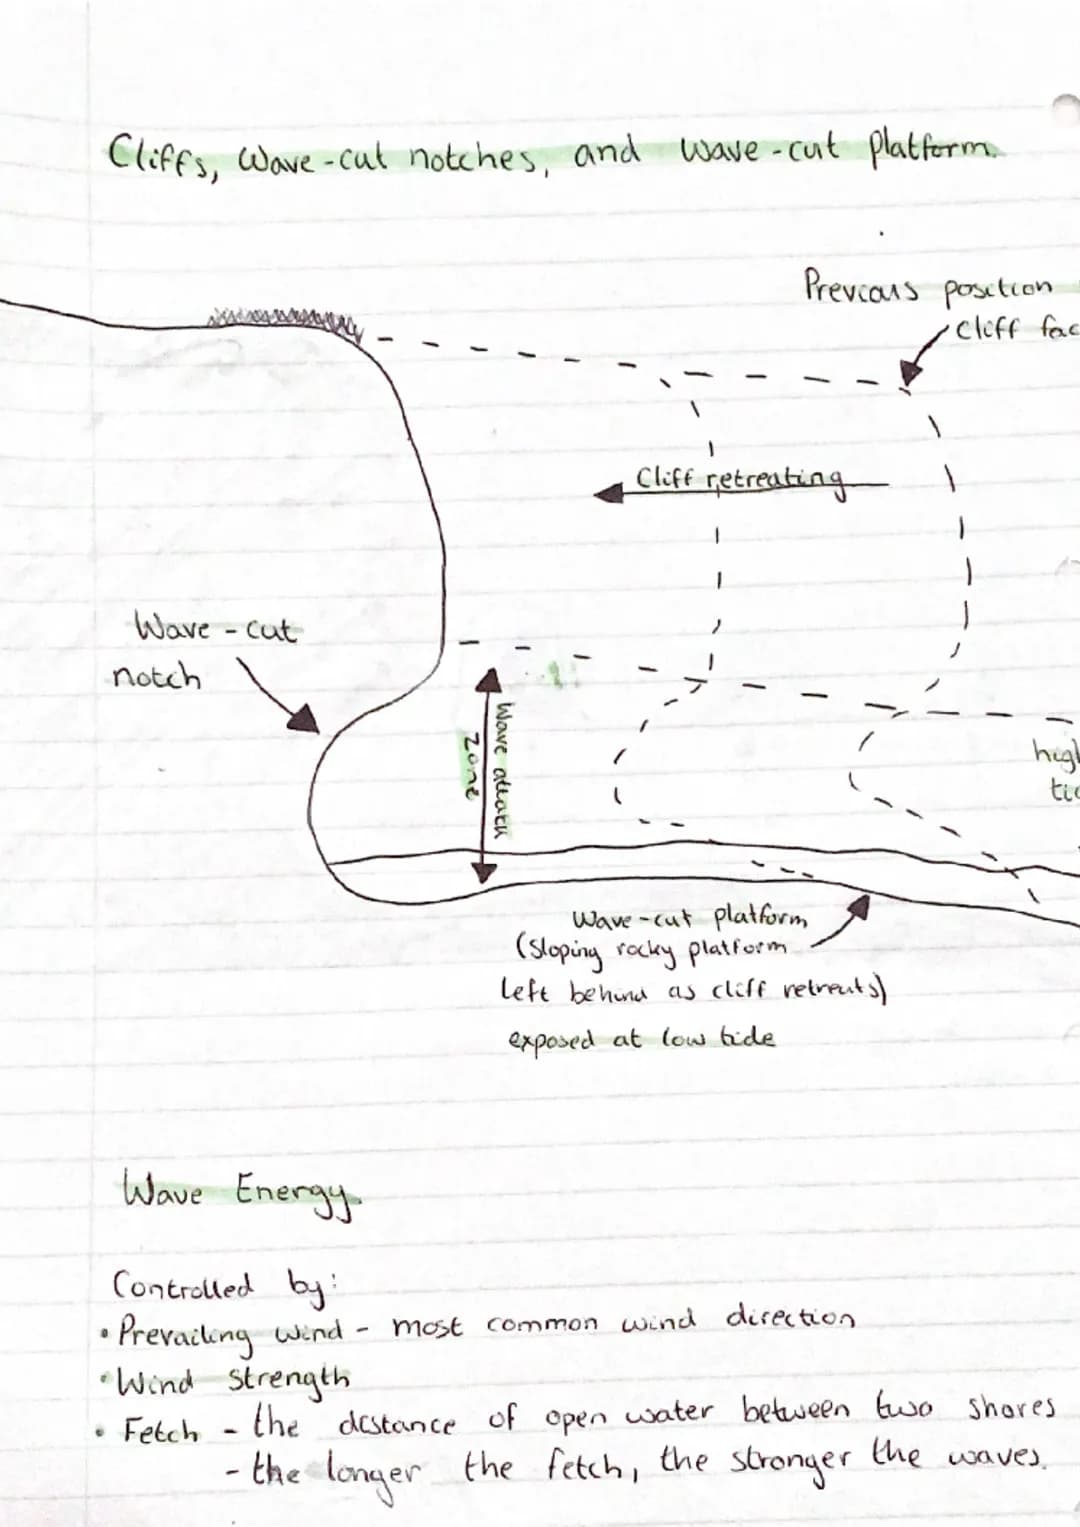 Cliffs, Wave-cut notches, and wave-cut platform.
Previous position
cliff fac
Cliff retreating
Wave-cut
notch
Wave attack
zone
high
tid
Wave-cut platform
(sloping rocky platform
left behind as cliff retreats)
exposed at low tide
Wave Energy.
Controlled by:
• Prevailing wind - most common wind direction
• Wind strength
• Fetch - the distance of open water between two shores
- the longer the fetch, the stronger the waves.